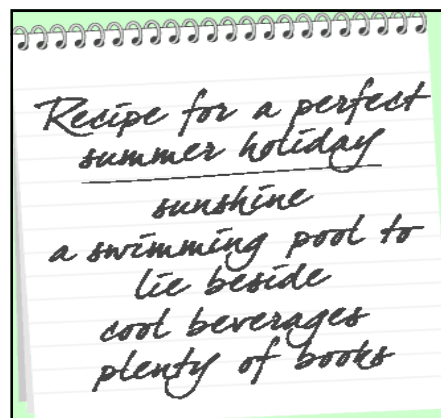 Recipe for a perfect
summer holiday
sunshine
a swimming pool to
lie beside
cool beverages
plenty of books